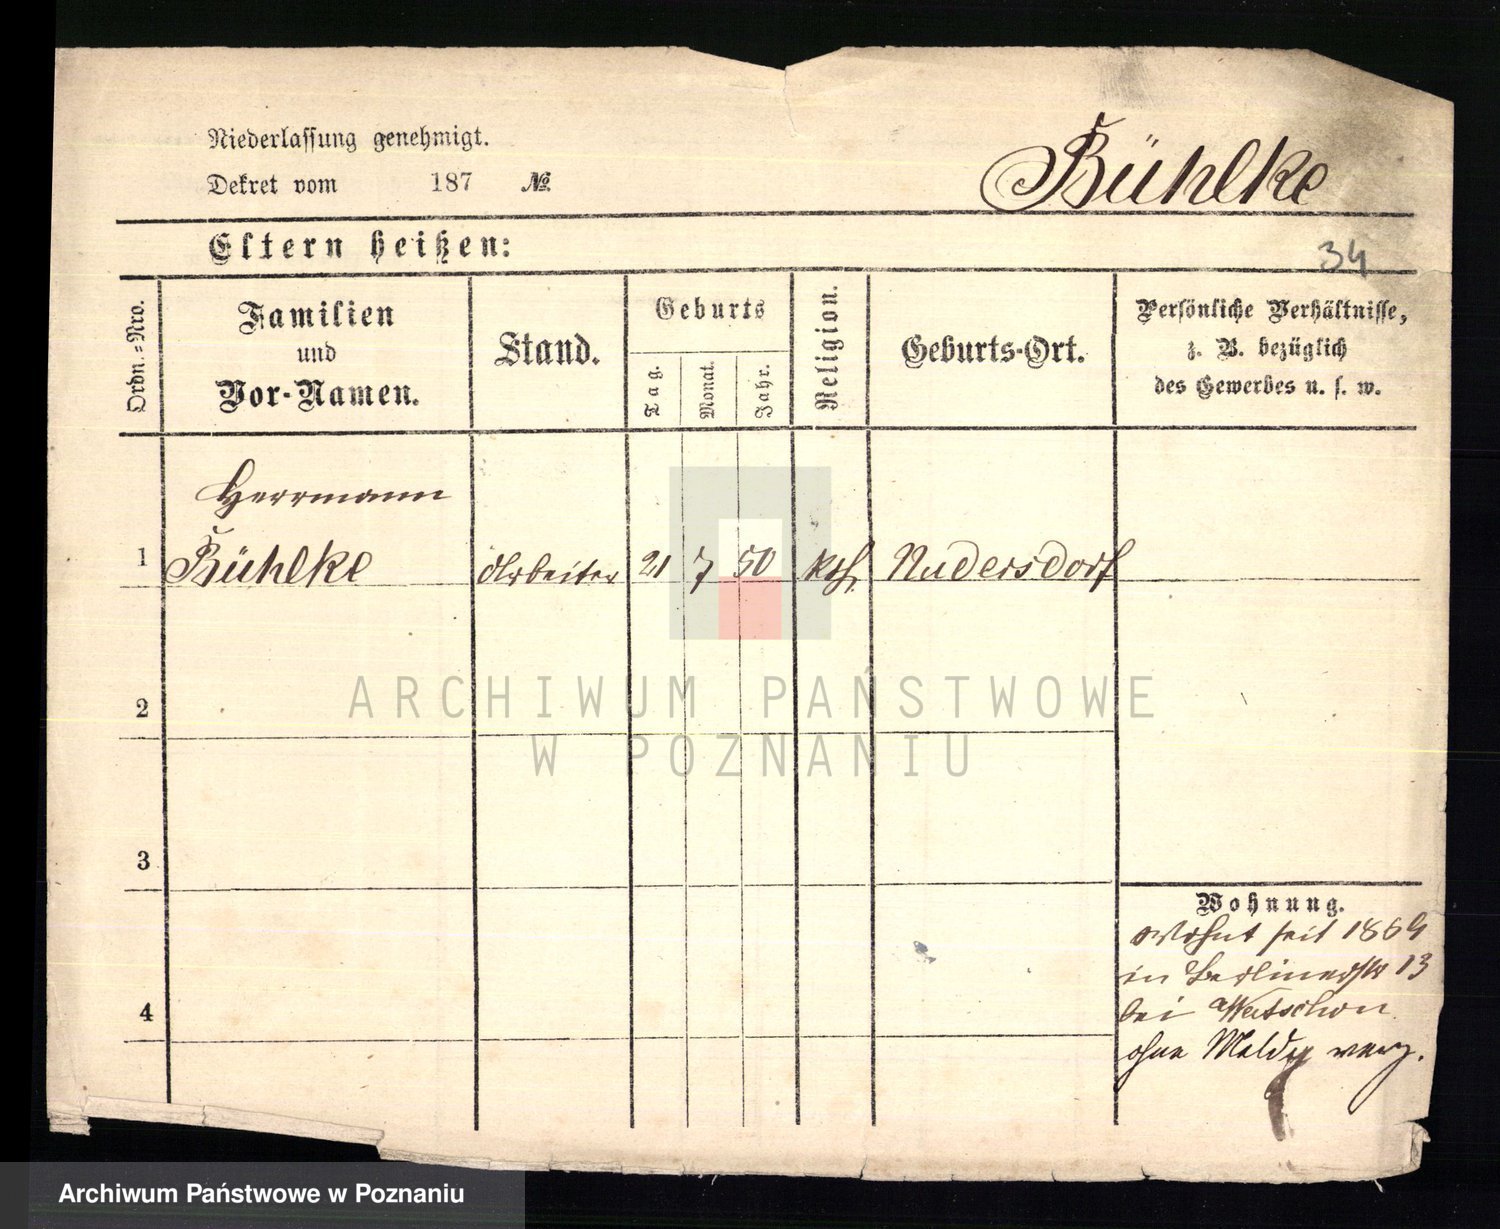 Niederlassung genehmigt.
Dekret vom 187 №
Bühlke
Eltern heißen:
34
Ordn.=Nro.
Familien
und
Vor-Namen.
Stand.
Geburts
Tag.
Monat.
Jahr.
Religion.
Geburts-Ort.
Persönliche Verhältnisse,
z. B. bezüglich
des Gewerbes u. s. w.
Herrmann
1 Bühlke Arbeiter 21 7 50 kth. Nudersdorf
2
ARCHIWUM PAŃSTWOWE
W POZNANIU
3
Wohnung.
Wohnt seit 1869
in Berlinerstr 13
bei
4
ohne Meldg verz.
Archiwum Państwowe w Poznaniu